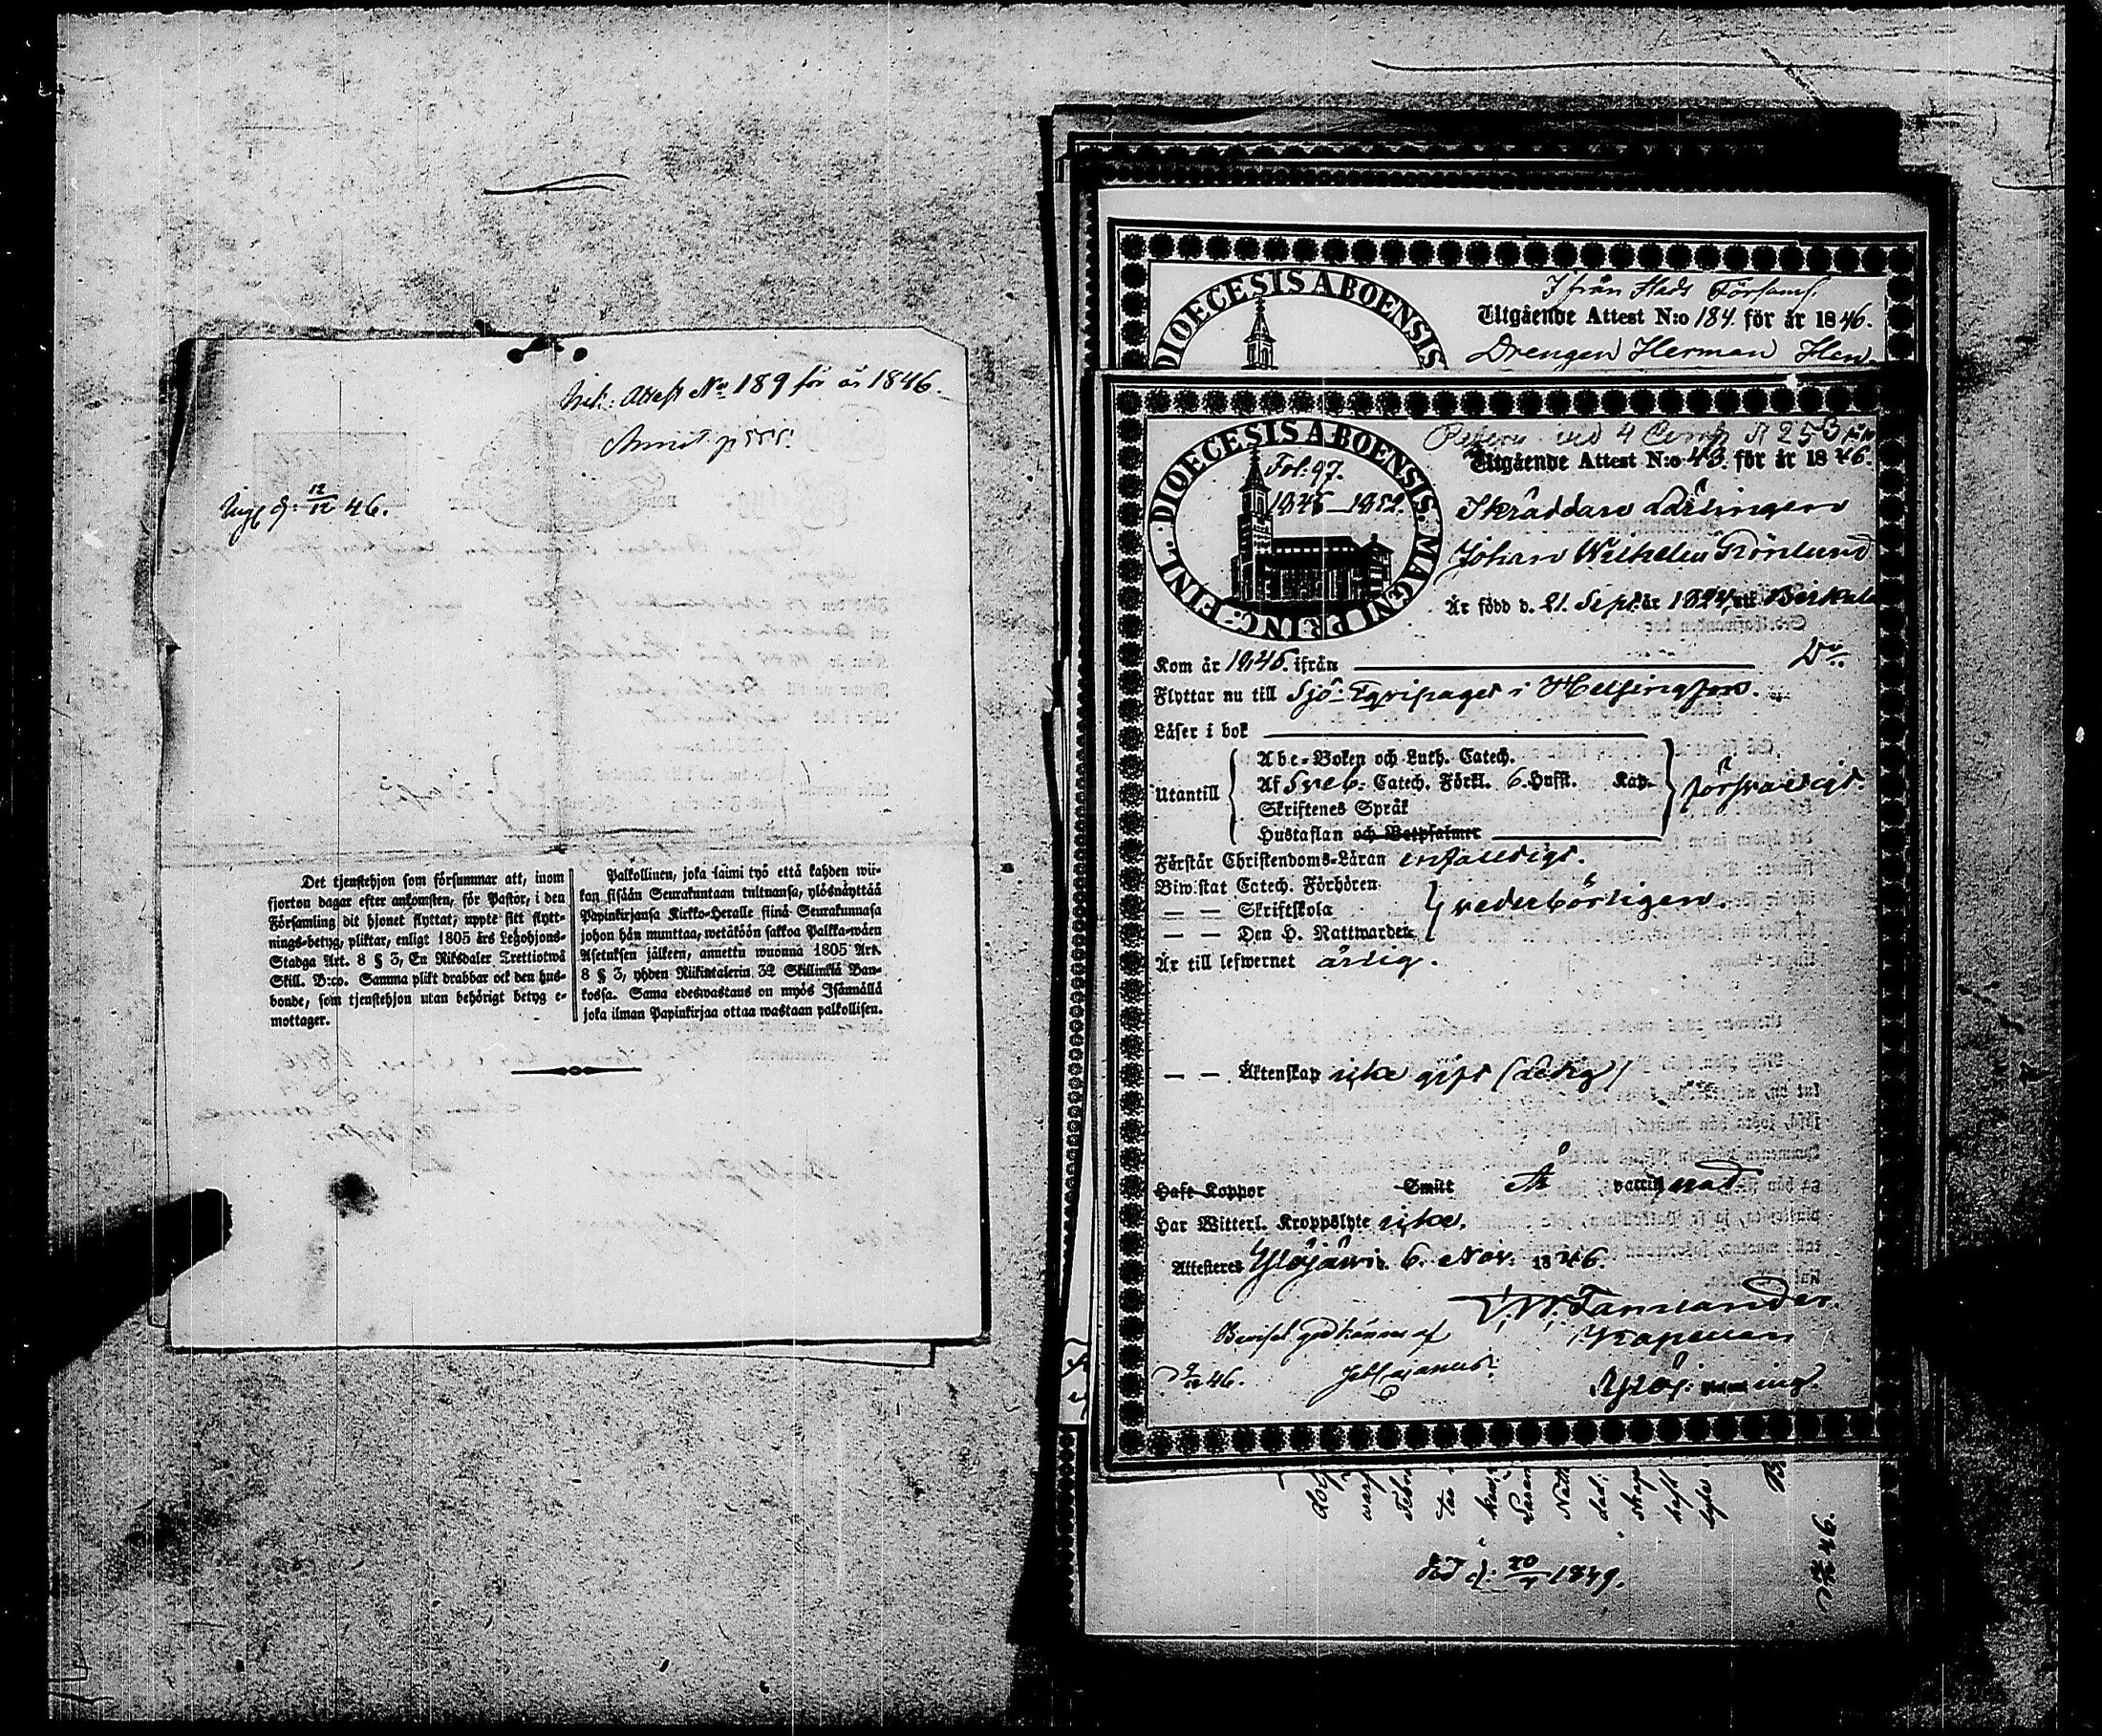 Ink: Attest No 189 för år 1846.
Annot p 555.
d: 12/12 46.
Det tjenstehjon som försummar att, inom
fjorton dagar efter ankomsten, för Pastor, i den
Församling dit hjonet flyttat, uppte sitt flytt-
nings-betyg, pliktar, enligt 1805 års Legohjons-
Stadga Art. 8 § 3, En Riksdaler Trettiotwå
Skill. B:co. Samma plikt drabbar ock den hus-
bonde, som tjenstehjon utan behörigt betyg e-
mottager.
Palkollinen, joka laimi lyö että kahden wii-
kon sisään Seurakuntaan tultuansa, ylösnäyttää
Papinkirjansa Kirkko-Heralle siinä Seurakunnasa
johon hän muuttaa, wetäköön sakkoa Palkka-wäen
Asetuksen jälkeen, annettu wuonna 1805 Art.
8 § 3, yhden Riikintalerin 32 Skillinkiä Ban-
kossa. Sama edeswastaus on myös Isännällä
joka ilman Papinkirjaa ottaa wastaan palkollisen.
DIOECESIS ABOENSIS
Ifrån Stads Församl.
Utgående Attest N:o 184. för år 1846.
Drengen Herman Hen-
FINL. DIOECESIS ABOENSIS. MAGNI PRINC:
Fol: 97.
1846–1852.
ved 4 Comp. N 253
Utgående Attest N:o 43. för år 1846.
Skräddare Lärlingen
Johan Wilhelm Grönlund
Är född d. 21. Sept. år 1824, uti Birkala
Kom år 1846. ifrån D:o
Flyttar nu till Sjö-Equipaget i Helsingfors.
Läser i bok
Utantill
Abc-Boken och Luth. Catech.
Af Sveb: Catech. Förkl. 6. Hufst. Kap.
Skriftenes Språk
Hustaflan och Botpsalmer
försvarligt.
Förstår Christendoms-Läran enfaldigt.
Biwistat Catech. Förhören
— — Skriftskola
— — Den H. Nattwarden
vederbörligen
Är till lefwernet ärlig.
— — Äktenskap icke gift (ledig)
Haft Koppor Smitt Är vaccinerad.
Har Witterl. Kroppslyte icke.
Attesteres Ylöjärvi. 6. Nov. 1846.
Tammander.
Beviset godkännes af Kapellan
9/12 46.
Död d: 20/1 1849.